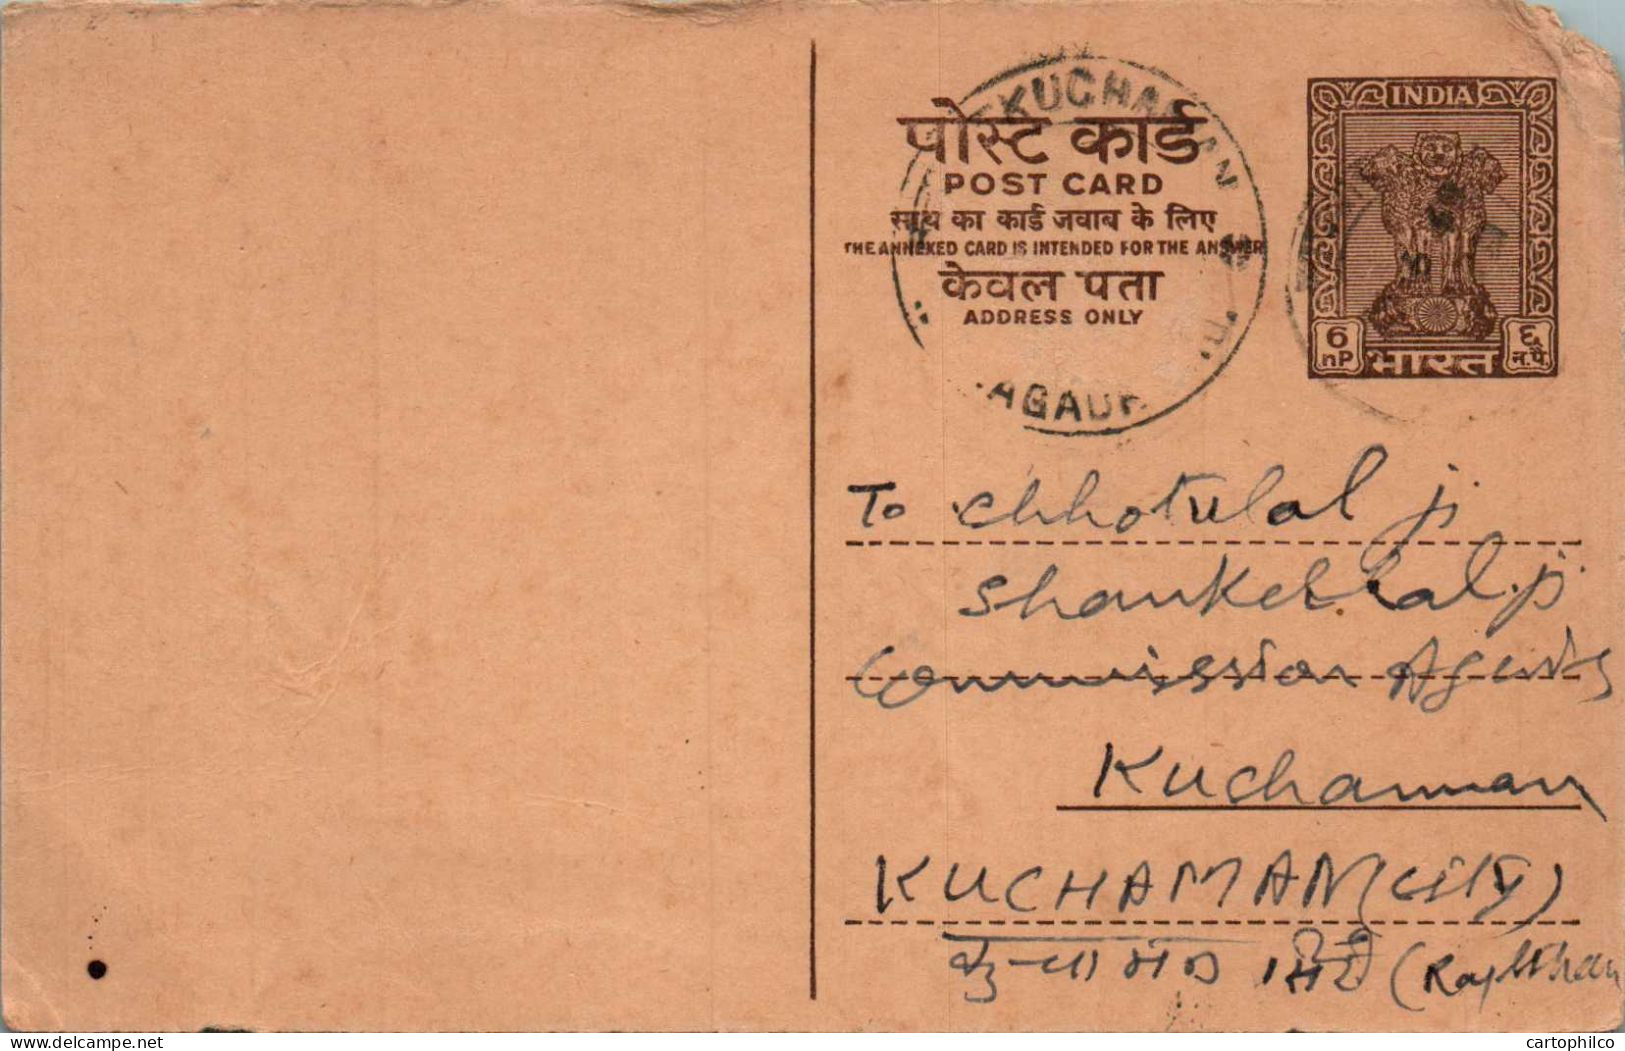 KUCHAMAN
पोस्ट कार्ड
POST CARD
साथ का कार्ड जवाब के लिए
THE ANNEXED CARD IS INTENDED FOR THE ANSWER
केवल पता
ADDRESS ONLY
AGAUR
INDIA
6 nP
६ न.पै.
भारत
To Chhotulal ji
Shankerlal ji
Commission Agents
Kuchaman
KUCHAMAN (City)
कुचामन सिटी (Rajasthan
cartophilco